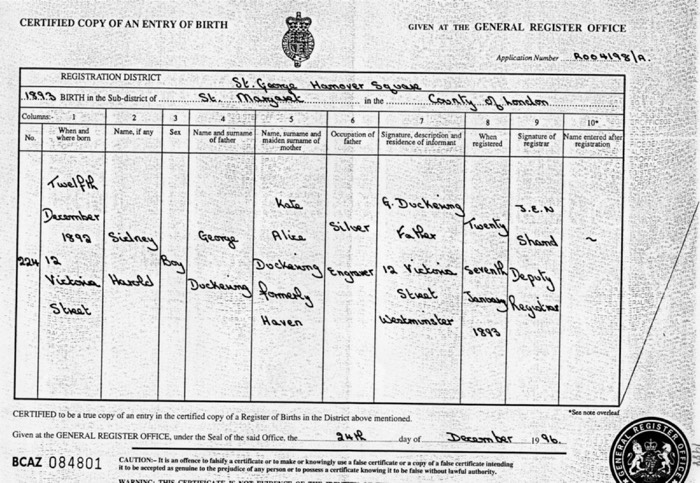 CERTIFIED COPY OF AN ENTRY OF BIRTH
GIVEN AT THE GENERAL REGISTER OFFICE
Application Number R004198/A.
REGISTRATION DISTRICT St. George Hanover Square
1893 BIRTH in the Sub-district of St. Margaret in the County of London
Columns:- 1 2 3 4 5 6 7 8 9 10*
No. When and where born Name, if any Sex Name and surname of father Name, surname and maiden surname of mother Occupation of father Signature, description and residence of informant When registered Signature of registrar Name entered after registration
224
Twelfth
December
1892
12
Victoria
Street
Sidney
Harold
Boy
George
Duckeung
Kate
Alice
Duckeung
formerly
Haven
Silver
Engraver
G. Duckeung
Father
12 Victoria
Street
Westminster
Twenty
seventh
January
1893
J.E.N
Shand
Deputy
Registrar
~
*See note overleaf
CERTIFIED to be a true copy of an entry in the certified copy of a Register of Births in the District above mentioned.
Given at the GENERAL REGISTER OFFICE, under the Seal of the said Office, the 24th day of December 1996.
BCAZ 084801
CAUTION:- It is an offence to falsify a certificate or to make or knowingly use a false certificate or a copy of a false certificate intending
it to be accepted as genuine to the prejudice of any person or to possess a certificate knowing it to be false without lawful authority.
WARNING: THIS CERTIFICATE IS NOT EVIDENCE OF THE
GENERAL REGISTER